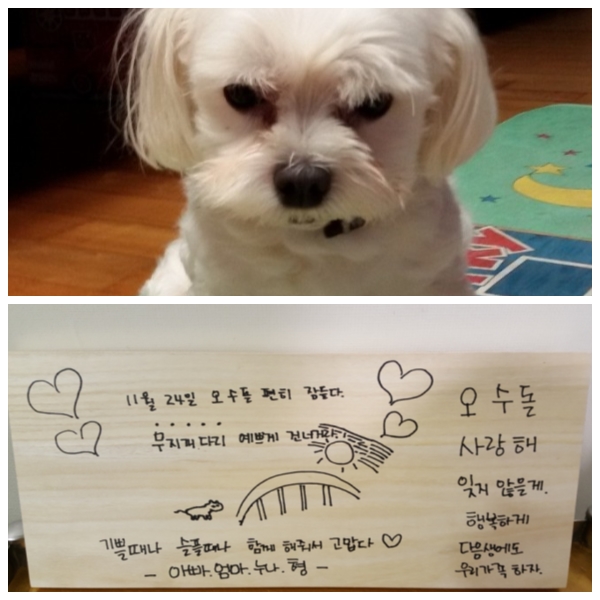 11월 24일 오수돌 편히 잠들다.
무지개다리 예쁘게 건너라
기쁠때나 슬플때나 함께 해줘서 고맙다
- 아빠.엄마.누나.형 -
오수돌
사랑해
잊지 않을게.
행복하게
다음생에도
우리가족 하자.